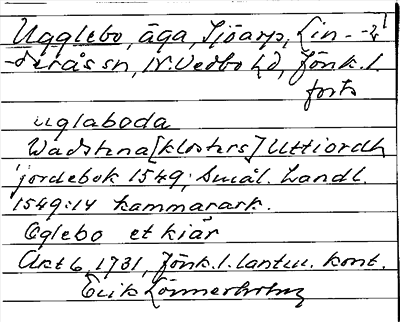 Ugglebo, äga, Sjöarp, Lin-
-derås sn, N. Vedbo hd, Jönk. l.
forts
uglaboda
Wadstena [klosters] Uttiordh
jordebok 1549; Smål. Handl.
1549:14 kammarark.
Oglebo et kiär
Akt 6, 1731, Jönk. l. lantm. kont.
Erik Lönnerholm